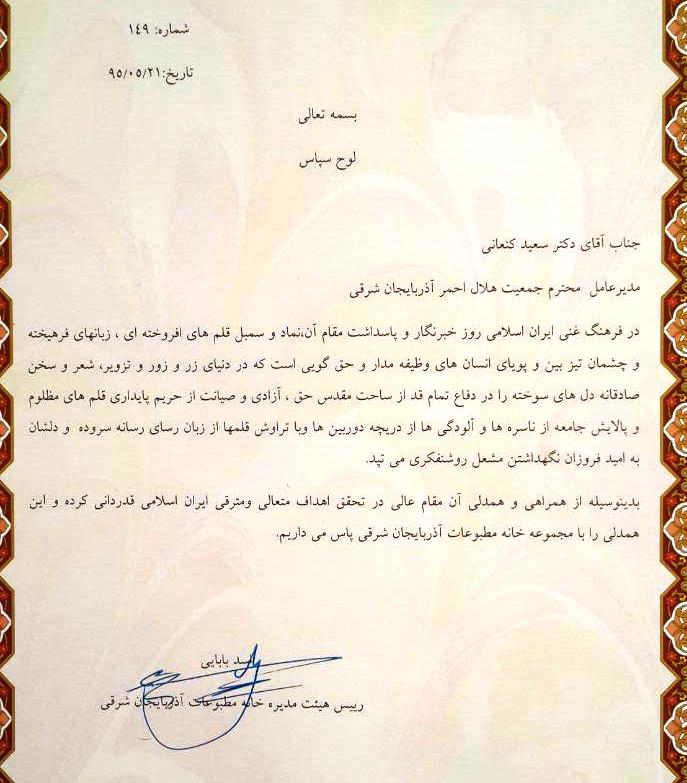 شماره: ۱۴۹
تاریخ:۹۵/۰۵/۲۱
بسمه تعالی
لوح سپاس
جناب آقای دکتر سعید کنعانی
مدیرعامل محترم جمعیت هلال احمر آذربایجان شرقی
در فرهنگ غنی ایران اسلامی روز خبرنگار و پاسداشت مقام آن،نماد و سمبل قلم های افروخته ای ، زبانهای فرهیخته
و چشمان تیز بین و پویای انسان های وظیفه مدار و حق گویی است که در دنیای زر و زور و تزویر، شعر و سخن
صادقانه دل های سوخته را در دفاع تمام قد از ساحت مقدس حق ، آزادی و صیانت از حریم پایداری قلم های مظلوم
و پالایش جامعه از ناسره ها و آلودگی ها از دریچه دوربین ها وبا تراوش قلمها از زبان رسای رسانه سروده و دلشان
به امید فروزان نگهداشتن مشعل روشنفکری می تپد.
بدینوسیله از همراهی و همدلی آن مقام عالی در تحقق اهداف متعالی ومترقی ایران اسلامی قدردانی کرده و این
همدلی را با مجموعه خانه مطبوعات آذربایجان شرقی پاس می داریم.
بابایی
رییس هیئت مدیره خانه مطبوعات آذربایجان شرقی